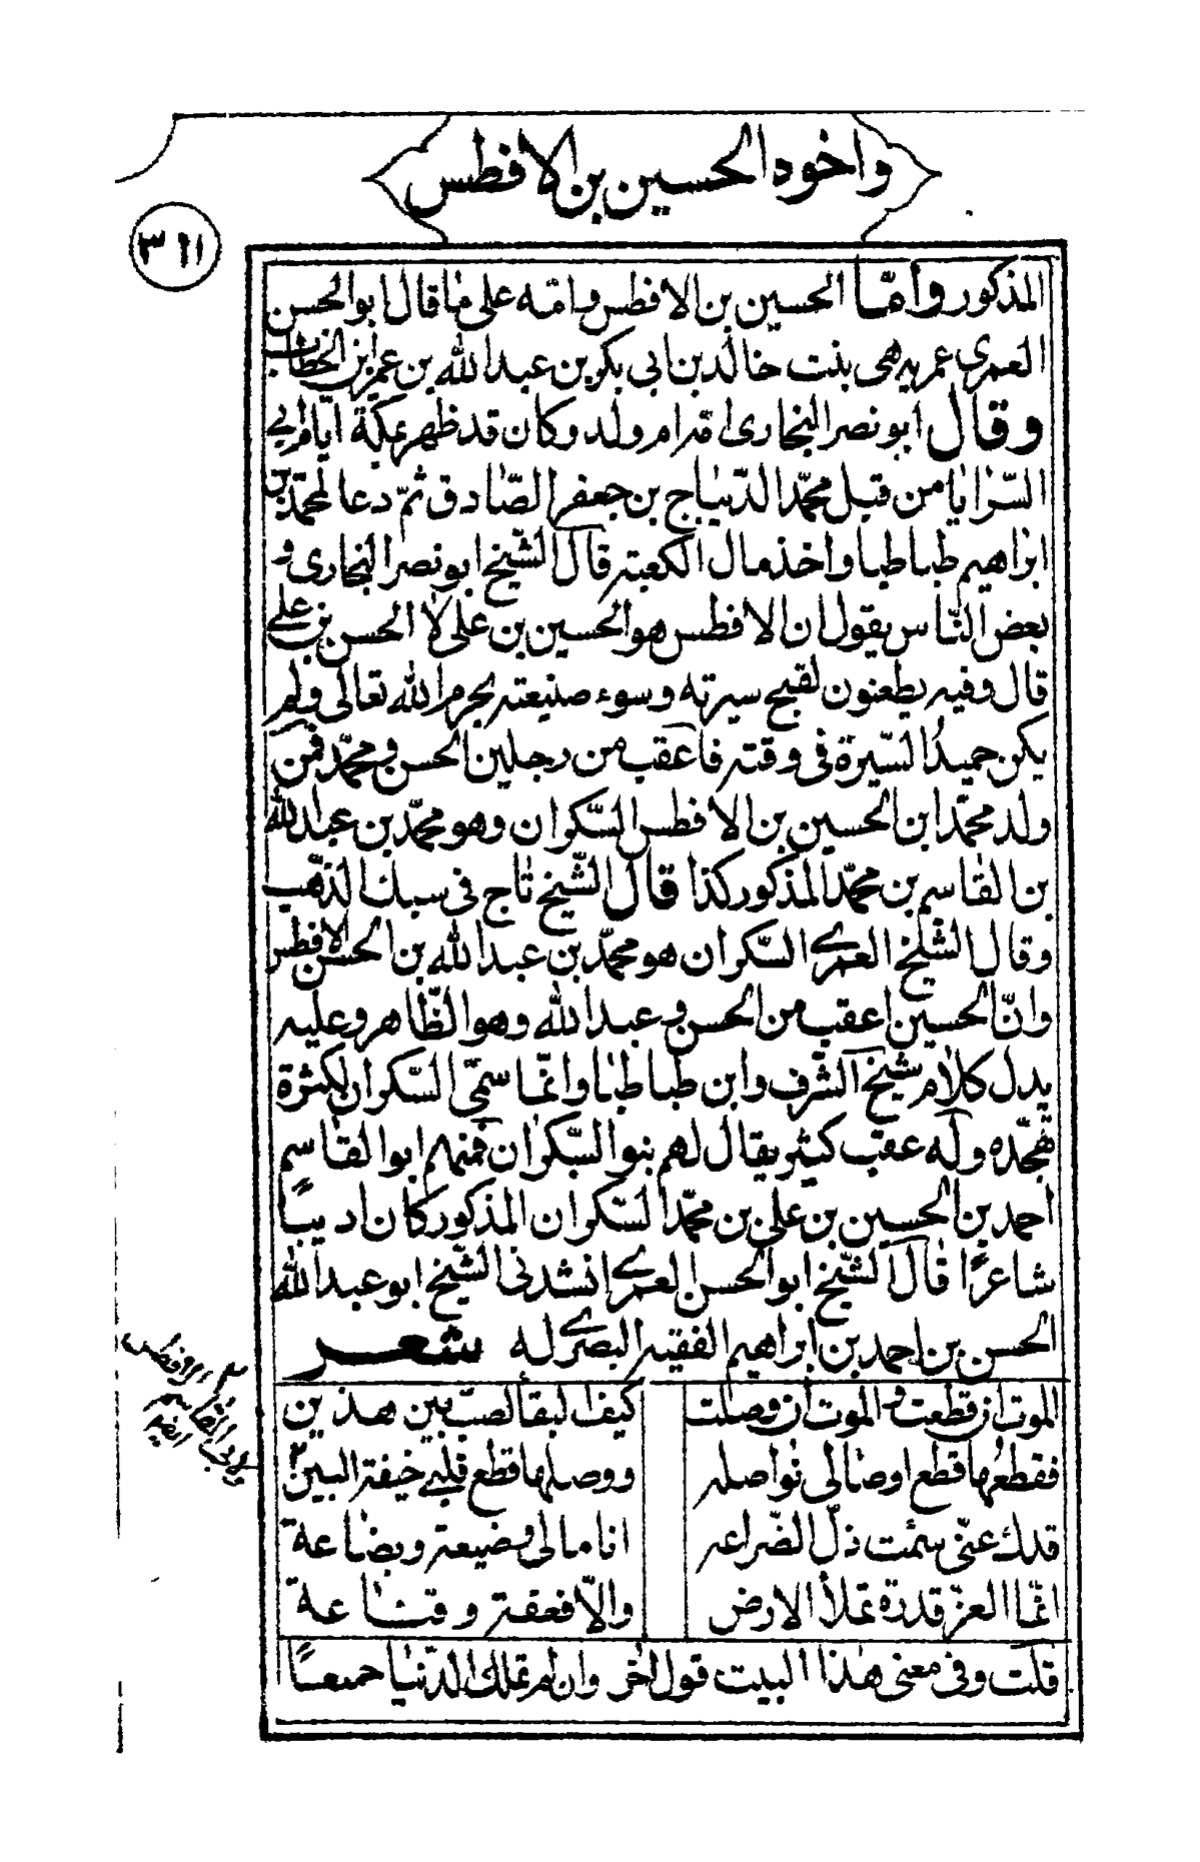 واخوه الحسين بن الافطس
٣١١
المذكور وامّا الحسين بن الافطس وامّه على ما قال ابو الحسن
العمرى عمريه هى بنت خالد بن ابى بكر بن عبد الله بن عمر بن الخطاب
وقال ابو نصر البخارى امّه ام ولد وكان قد ظهر بمكة ايّام ابى
السّرايا من قبل محمّد الدّيباج بن جعفر الصّادق ثمّ دعا لمحمّد بن
ابراهيم طباطبا واخذ مال الكعبة قال الشّيخ ابو نصر البخارى و
بعض النّاس يقول ان الافطس هو الحسين بن على لا الحسن بن على
قال وفيه يطعنون لقبح سيرته وسوء صنيعته بحرم الله تعالى ولم
يكن حميد السّيرة فى وقته فاعقب من رجلين الحسن ومحمّد فمن
ولد محمّد ابن الحسين بن الافطس السّكران وهو محمّد بن عبد الله
بن القاسم بن محمّد المذكور كذا قال الشّيخ تاج فى سبك الذّهب
وقال الشّيخ العمرى السّكران هو محمّد بن عبد الله بن الحسن الافطس
وانّ الحسين اعقب من الحسن و عبد الله وهو الظّاهر وعليه
يدل كلام شيخ الشّرف وابن طباطبا وانّما سمّى السّكران لكثرة
تهجّده وله عقب كثير يقال لهم بنو السّكران فمنهم ابو القاسم
احمد بن الحسين بن على بن محمّد السّكران المذكور كان اديبًا
شاعرًا قال الشّيخ ابو الحسن العمرى انشدنى الشّيخ ابو عبد الله
الحسن بن احمد بن ابراهيم الفقيه البصرى له شعر
الموت ان قطعت والموت ان وصلت كيف البقا لصب بين هذين
فقطعها قطع اوصالى تواصله ووصلها قطع قلبى خيفة البين
قدك عنّى سئمت ذلّ الضّراعه انا مالى وضيعة وبضاعة
انّما العزّ قدرة تملأ الارض والّا فعفة وقناعة
قلت وفى معنى هذا البيت قول اخر وان لم تملك الدّنيا جميعًا
الافطس
القاسم